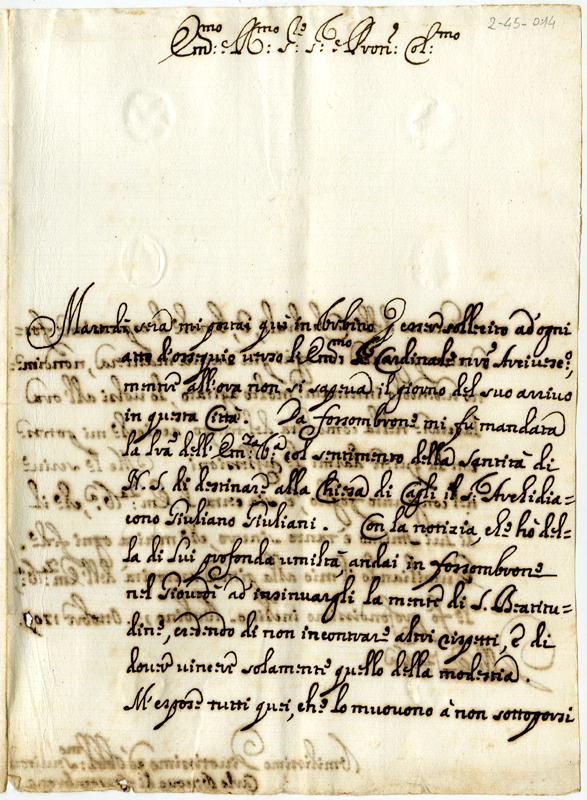 2-45-014
Em:mo e R:mo Sig:re S:r e Pron: Col:mo
Martedì sera mi portai quì in Urbino p esser sollecito ad ogni
atto d'ossequio verso di Em:mo Sr Cardinale nrõ Arcivesc:o,
mentre all'ora non si sapeva il giorno del suo arrivo
in questa Città. Da fossombrone mi fù mandata
la lrã dell'Em:za V:ra col sentimento della santità di
N. S. di destinare alla Chiesa di Cagli il S:r Arcidia=
cono Giuliano Giuliani. Con la notizia, che hò del=
la di lui profonda umiltà, andai in fossombrone
nel Giovedì ad insinuargli la mente di S. Beatitu=
dine, credendo di non incontrare altri rispetti, è di
dover vincere solamente quello della modestia.
M'espose tutti quei, che lo muovono à non sottoporsi